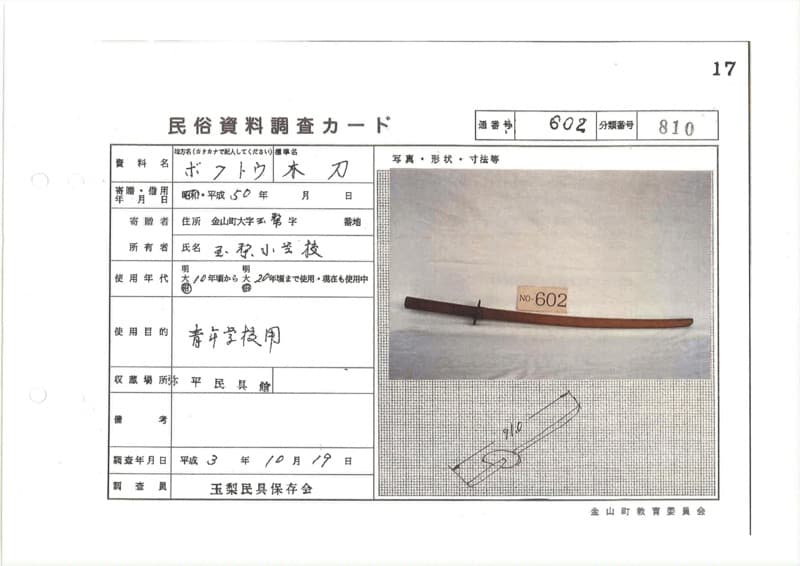 17
民俗資料調査カード
通番号 602 分類番号 810
資料名 地方名(カタカナで記入してください) ボクトウ 標準名 木刀
写真・形状・寸法等
寄贈・借用年月日 昭和・平成 50年 月 日
寄贈者 住所 金山町大字玉梨字 番地
所有者 氏名 玉梨小学校
使用年代 明大昭 10年頃から 明大昭 20年頃まで使用・現在も使用中
NO-602
使用目的 青年学校用
収蔵場所 弥平民具館
備考
91.0
調査年月日 平成 3年 10月 19日
調査員 玉梨民具保存会
金山町教育委員会